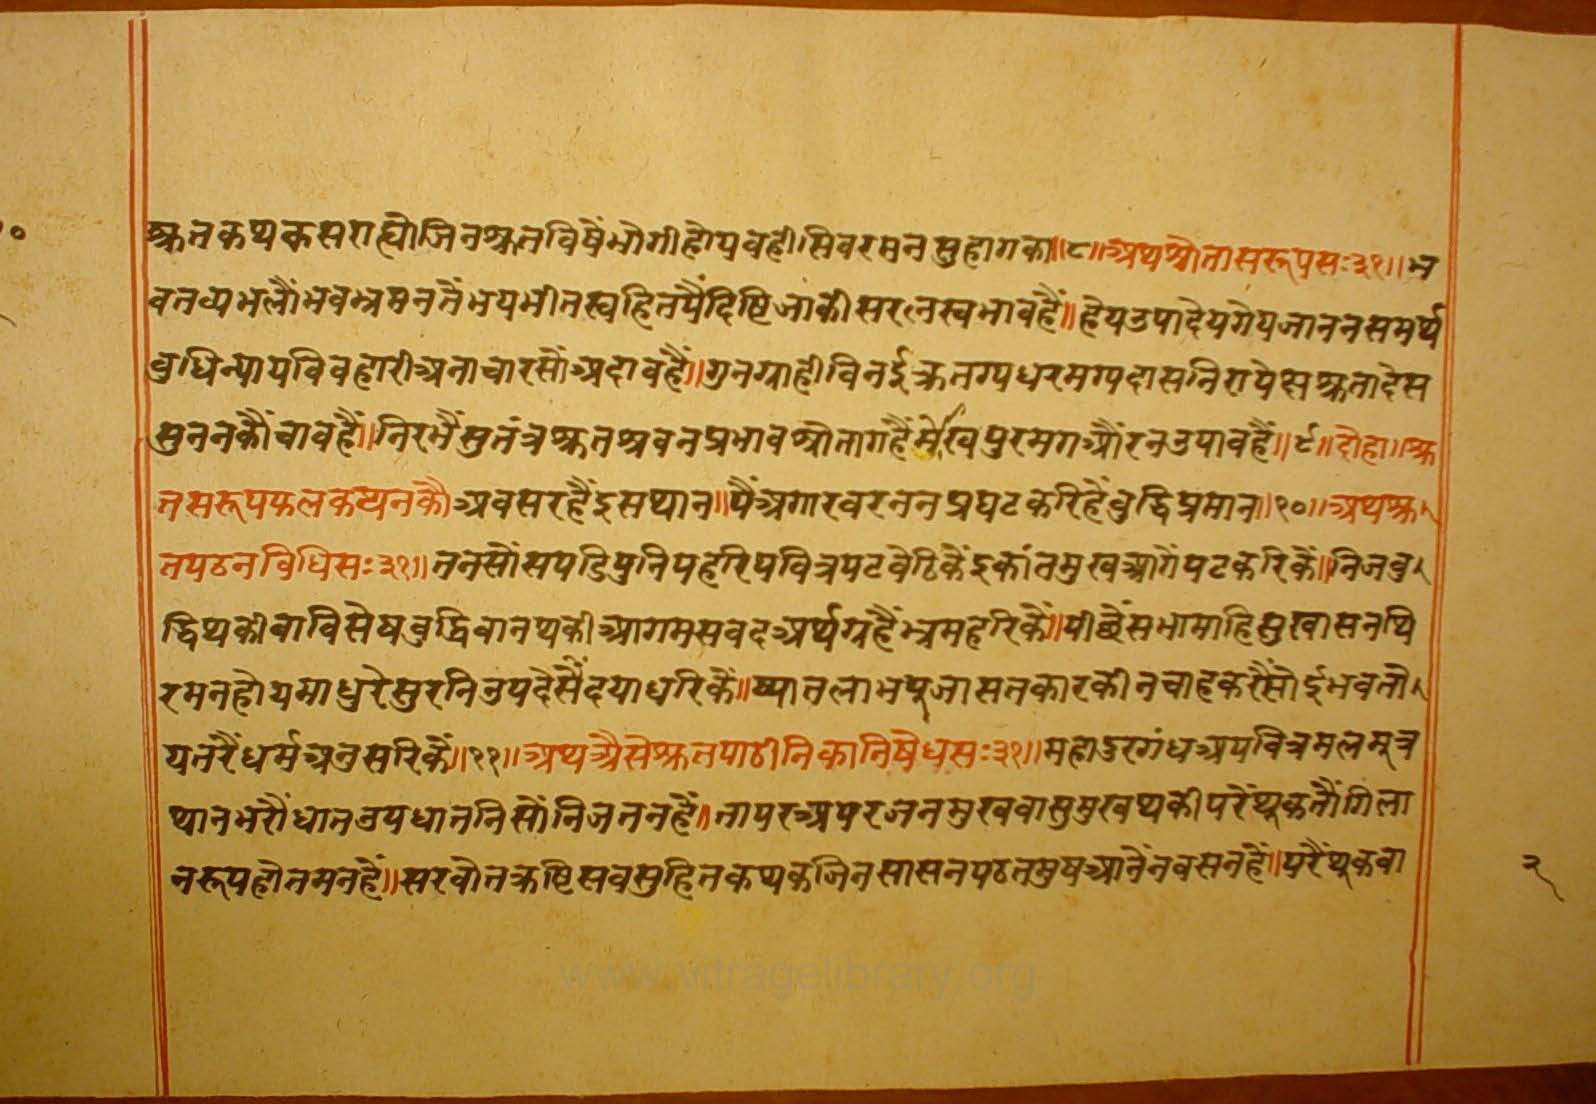 श्रुतकथकसराह्यौजिनश्रुतविषैंभोगीहोयवहीसिवरमनसुहागका॥८॥अथश्रोतासरूपसः३१॥भ
वतव्यभलौंभवभ्रमनतैंभयभीतस्वहितपैंदिष्टिजाकीसरलस्वभावहैं॥हेयउपादेयगेयजाननसमर्थ
बुधिन्यायविवहारीअनाचारसौंअदावहैं॥गुनग्राहीविनईश्रुतग्यधरमग्यदासनिरापेक्षश्रुतादेस
सुननकौंचावहैं॥निरभैंसुतंत्रश्रुतश्रवनप्रभावश्रोतागहैंमोखपुरमगऔंरनउपावहैं॥९॥दोहा॥श्रु
तसरूपफलकथनकौअवसरहैंइसथान॥पैंअगारवरननप्रघटकरिहैंबुद्धिप्रमान॥१०॥अथश्रु
तपठनविधिसः३१॥तनसौंसपडिपुनिपहरिपवित्रपटवेठिकेंइकांतमुखआगेंपटकरिकें॥निजबु
द्धिथकीवाविसेषबुद्धिवानथकीआगमसवदअर्थग्रहैंभ्रमहरिकैं॥पीछैंसभामाहिसुखासनथि
रमनहोयमाधुरेसुरनिउपदेसैंदयाधरिकें॥ख्यातलाभपूजासतकारकीनचाहकरैंसोईभवतो
यतरैंधर्मअनुसरिकें॥११॥अथऐसेश्रुतपाठीनिकानिषेधसः३१॥महादुरगंधअपवित्रमलमूत्र
थानभरौंधातउपधातनिसौंनिजतनहैं॥तापरअपरजनमुखवासुमुखथकीपरेंथूकतौंगिला
नरूपहोतमनहैं॥सरवोतक्रष्टिसवसुहितकथकजिनसासनपठतमुषआनेंनवसनहैं॥परैंथूकवा
२